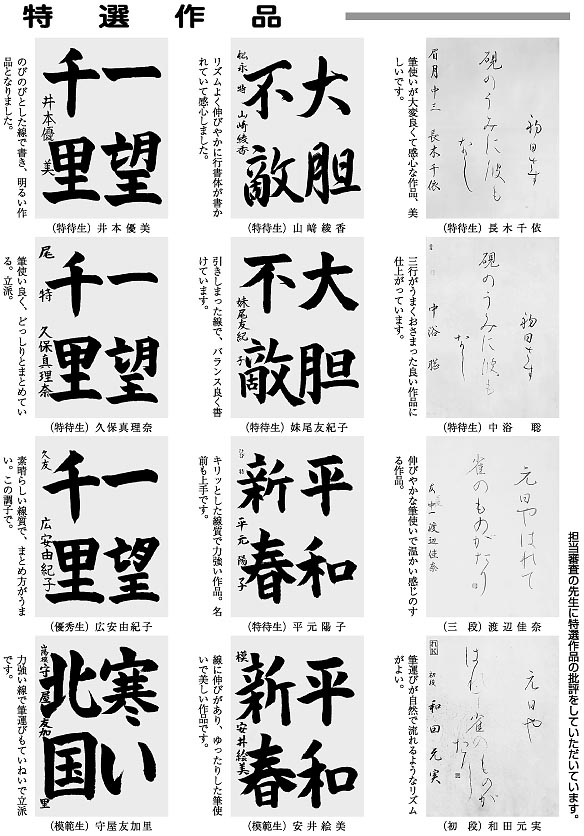 特選作品
担当審査の先生に特選作品の批評をしていただいています。
初日さす
硯のうみに波も
なし
眉月 中三 長木千依
筆使いが大変良くて感心な作品、美
しいです。
(特待生) 長木千依
大胆
不敵
松永 特 山﨑綾香
リズムよく伸びやかに行書体が書か
れていて感心しました。
(特待生) 山﨑綾香
一望
千里
井本優美
のびのびとした線で書き、明るい作
品となりました。
(特待生) 井本優美
初日さす
硯のうみに波も
なし
中浴 聡
三行がうまくおさまった良い作品に
仕上がっています。
(特待生) 中浴 聡
大胆
不敵
妹尾友紀子
引きしまった線で、バランス良く書
けています。
(特待生) 妹尾友紀子
一望
千里
尾 特 久保真理奈
筆使い良く、どっしりとまとめてい
る。立派。
(特待生) 久保真理奈
元日やはれて
雀のものがたり
広 中一 渡辺佳奈
伸びやかな筆使いで温かい感じのす
る作品。
(三 段) 渡辺佳奈
平和
新春
平元陽子
キリッとした線質で力強い作品。名
前も上手です。
(特待生) 平元陽子
一望
千里
久友 広安由紀子
素晴らしい線質で、まとめ方がうま
い。この調子で。
(優秀生) 広安由紀子
元日や
はれて雀のものが
たり
初段 和田充実
筆運びが自然で流れるようなリズム
がよい。
(初 段) 和田元実
平和
新春
模 安井絵美
線に伸びがあり、ゆったりした筆使
いで美しい作品です。
(模範生) 安井絵美
寒い
北国
守屋友加里
力強い線で筆運びもていねいで立派
です。
(模範生) 守屋友加里